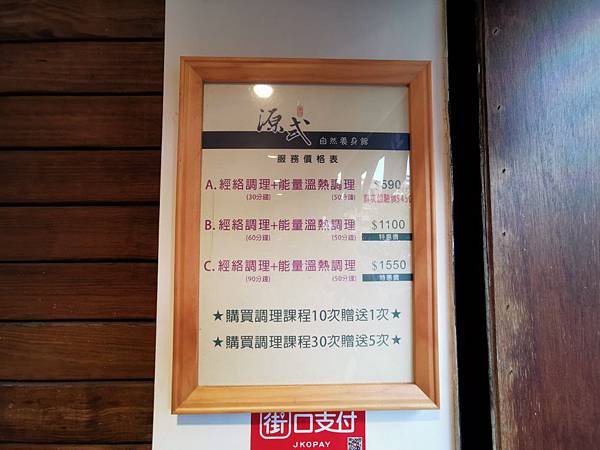 源式 自然養身館
服務價格表
A. 經絡調理+能量溫熱調理 $590
(30分鐘) (50分鐘)
B. 經絡調理+能量溫熱調理 $1100
(60分鐘) (50分鐘) 特惠價
C. 經絡調理+能量溫熱調理 $1550
(90分鐘) (50分鐘) 特惠價
★購買調理課程10次贈送1次★
★購買調理課程30次贈送5次★
街口支付
JKOPAY